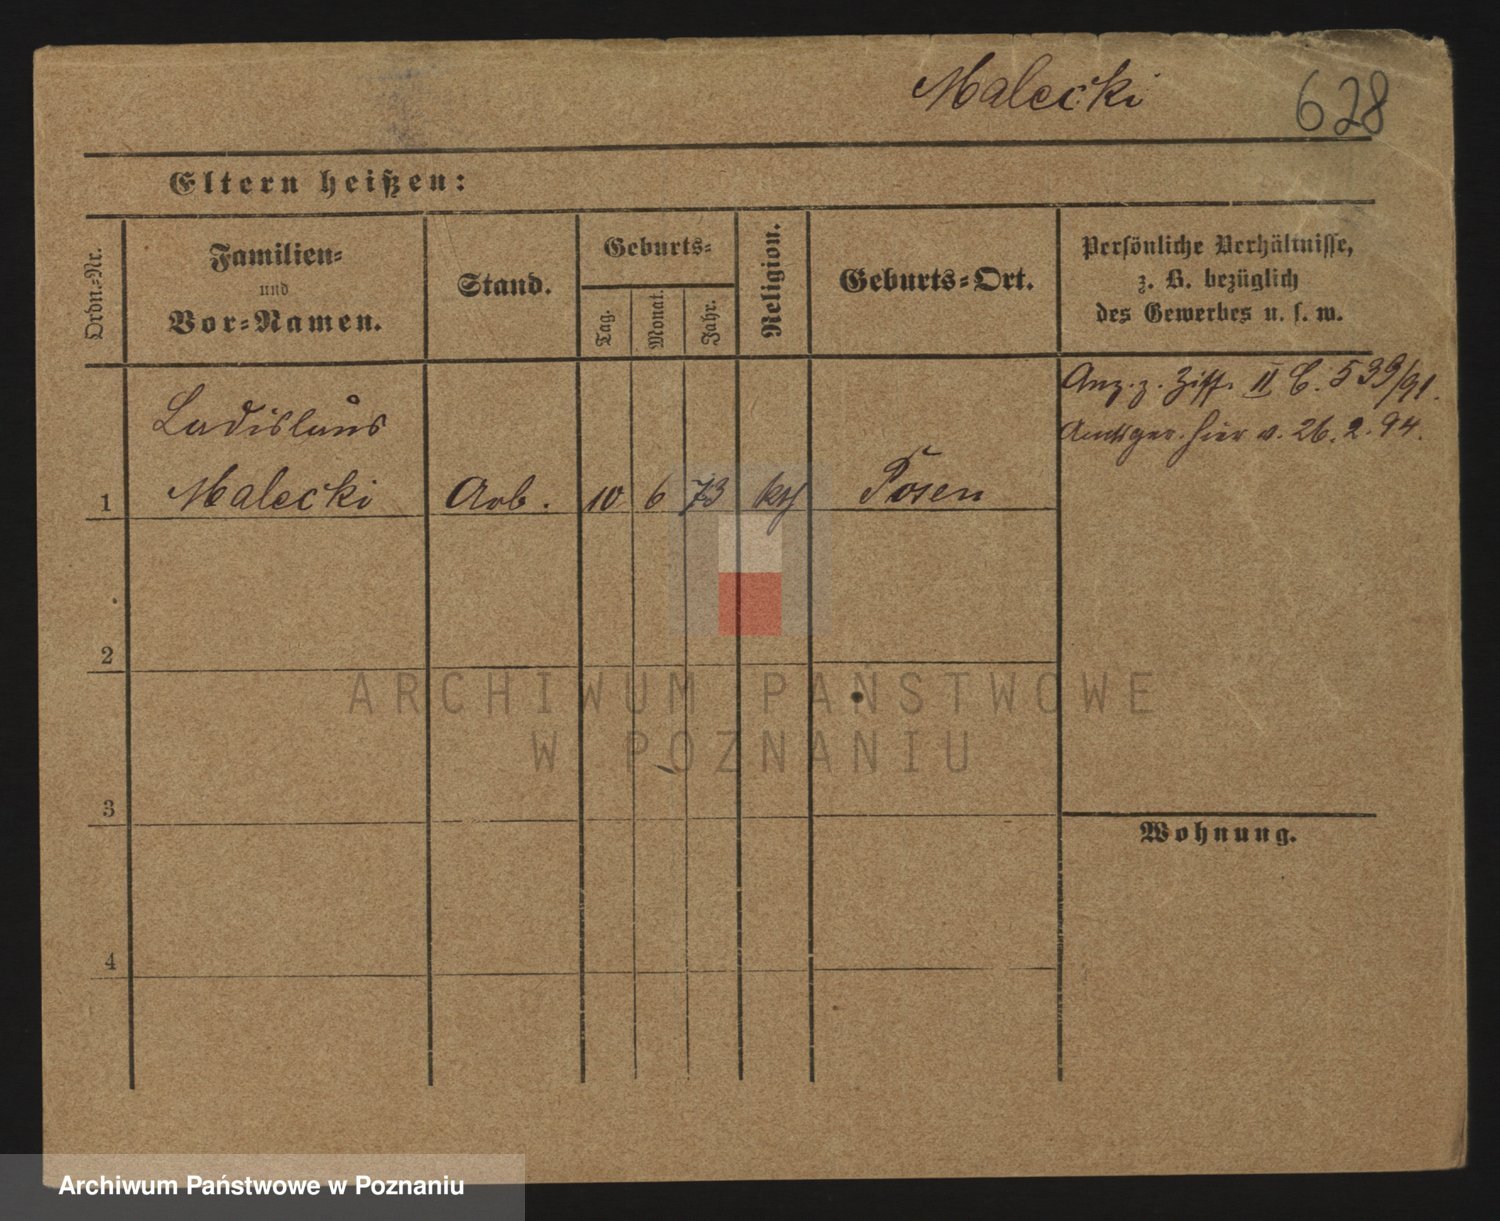 Malecki 628
Eltern heißen:
Ordn.-Nr.
Familien-
und
Vor-Namen.
Stand.
Geburts-
Tag.
Monat.
Jahr.
Religion.
Geburts-Ort.
Persönliche Verhältnisse,
z. B. bezüglich
des Gewerbes u. s. w.
Ladislaus
1 Malecki Arb. 10 6 73 kth Posen
Anz. z. Ziff. II C. 539/91.
Amtsger. hier v. 26. 2. 94.
2
ARCHIWUM PAŃSTWOWE
W POZNANIU
3
Wohnung.
4
Archiwum Państwowe w Poznaniu